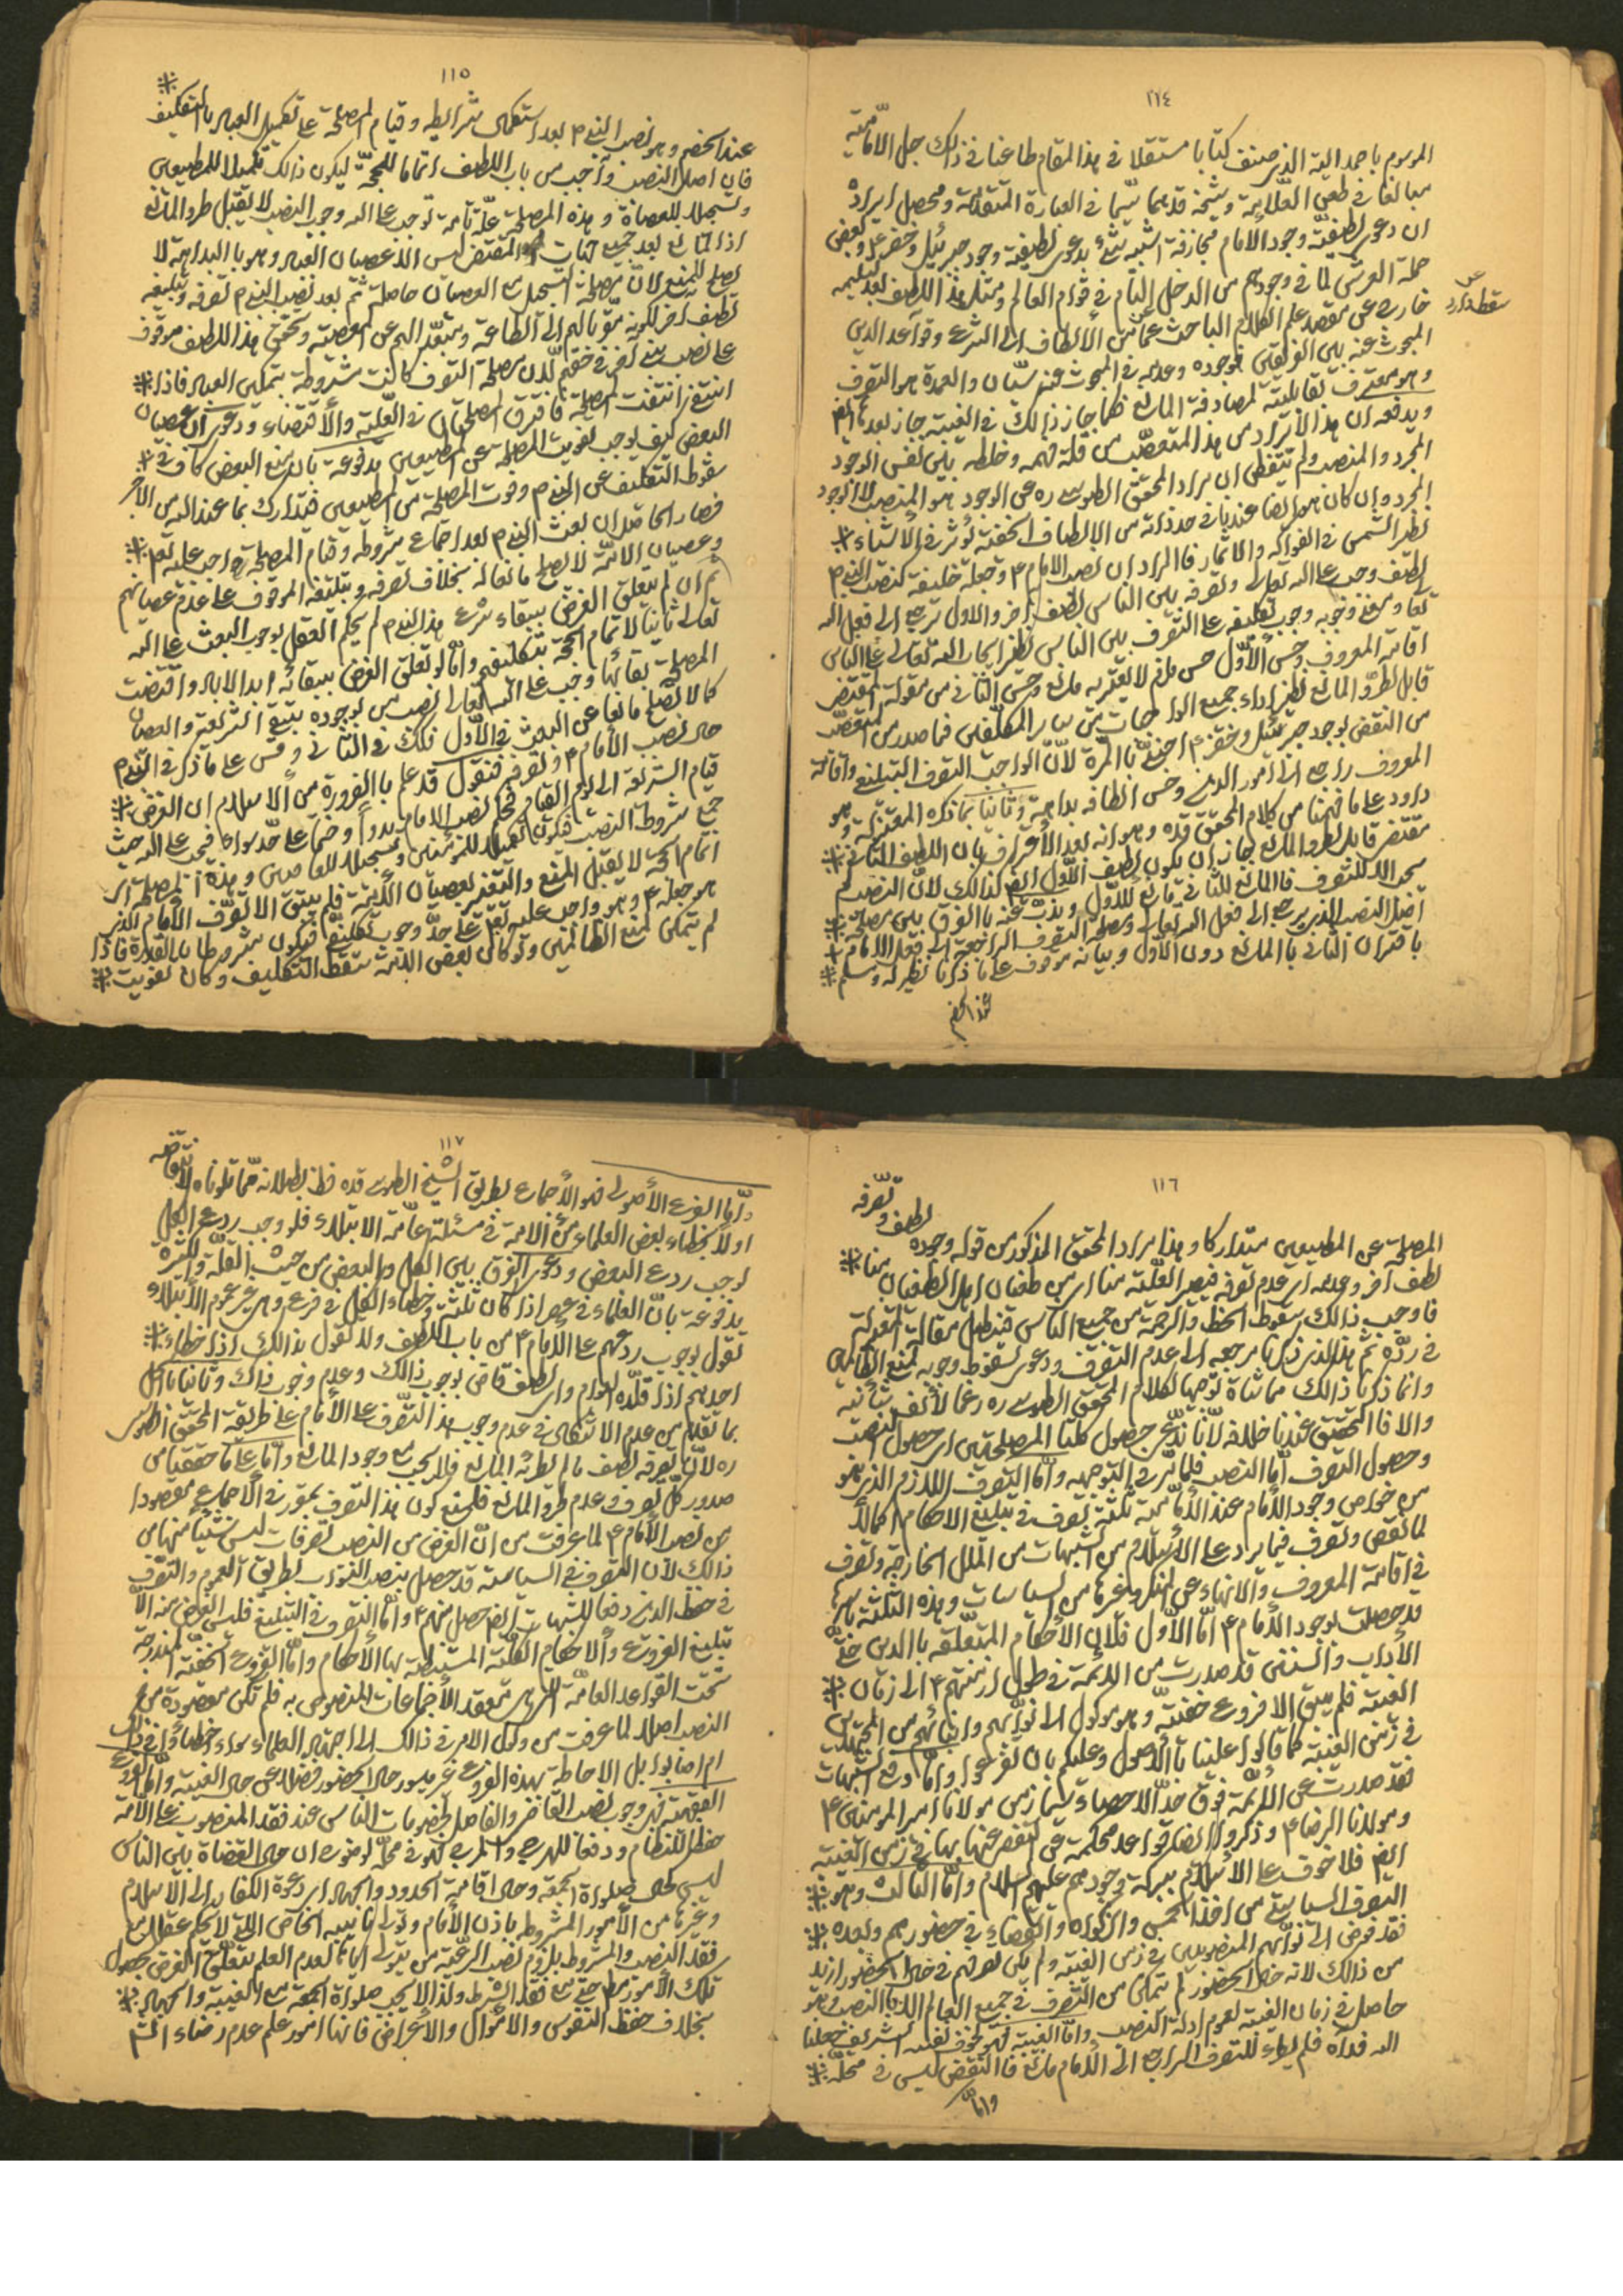 ١١٤
الموسوم باحمد الية الذي صنف كتابا مستقلا في هذا المقام طاعنا في ذالك جل الامامية
مبالغا في طعن العلامة وشيخه قدهما سيما في العبارة المتقدمة ومحصل ايراده
ان دعوى لطفية وجود الامام مجازفة اشبه شئ بدعوى لطيفية وجود جبرئيل وخضر عل وبعض
حملة العرش لما في وجودهم من الدخل التام في قوام العالم ومثل هذا اللطف بعد تسليمه
خارج عن مقصد علم الكلام الباحث عما من الألطاف الى الشرع وقواعد الدين
المبحوث عنه بين الفريقين فوجوده وعدمه في المبحوث عنه سيان والعمدة هو التصرف
وهو معترف تقابليته لمصادفة المانع فكما جاز ذالك في الغيبة جاز بعد
ويدفعه ان هذا الايراد من هذا المتعصب من قلة فهمه وخلطه بين نفس الوجود
المجرد والمنصب ولم يتفطن ان مراد المحقق الطوسي ره عن الوجود هو المنصب لا الوجود
المجرد وان كان هو ايضا عندنا في حد ذاته من الالطاف الخفية تؤثر في الأشياء
نظير الشمس في الفواكه والاثمار فالمراد ان نصب الامام ٤ وجعله خليفة كنصب النبي م
لطف وجب على الله تعالى وتصرفه بين الناس لطف آخر والاول يرجع الى فعل الله
تعا ومعنى وجوبه وجوب تكليفه على التصرف بين الناس نظير ايجاب الله تعالى على الناس
اقامة المعروف وحسن الأول حسن ملزم لا يعتريه مانع وحسن الثاني من مقولة المقتضى
قابل لطرو المانع نظير اداء جميع الواجبات من ساير المكلفين فما صدر من المتعصب
من النقض بوجود جبرئيل وخضر ٤ اجنبي بالمرة لأن الواجب التصرف التبليغ واقامة
المعروف راجع الى امور الدين وحسن الطافه بداهة وثانيا بما ذكره المعتزلة وهو
وارد على ما فهمنا من كلام المحقق قده وهو انه بعد الأعتراف بان اللطف الثاني
مقتضى قابل لطرو المانع جاز ان يكون لطف الأول ايضا كذالك لان النصب لم
يجب الا للتصرف فالمانع للثاني مانع للأول ويذب عنه بالفرق بين مصلحة
اصل النصب الذي يرجع الى فعل الله تعالى ومصلحة التصرف الراجع الى فعل الامام
باقتران الثاني بالمانع دون الاول وبيانه موقوف على ما ذكرنا نظيره وسلم
عند الخصم
١١٥
عند الخصم وهو نصب النبي م بعد استكمال شرائطه وقيام المصلحة على تكميل العباد بالتكليف
فان اصل النصب واجب من باب اللطف اتماما للحجة ليكون ذالك تكميلا للمطيعين
وتسجيلا للعصاة وهذه المصلحة علة تامة توجب على الله وجوب النصب لا تقبل طرو المانع
اذ المانع بعد جميع جهات المقتضى ليس الا عصيان العباد وهو بالبداهة لا
يصلح للمنع لان مصلحة التسجيل مع العصيان حاصلة ثم بعد نصب النبي م تصرفه وتبليغه
لطف آخر لكونه مقربا لهم الى الطاعة ومبعدا لهم عن المعصية وتحقق هذا اللطف موقوف
انتفى انتفت المصلحة فافترق المصلحتان في العلية والأقتضاء ودعوى ان عصيان
البعض كيف يوجب تفويت المصلحة عن المطيعين مدفوعة بان منع البعض كاف في
سقوط التكليف عن النبي م وفوت المصلحة من المطيعين متدارك بما عند الله من الأجر
فصار الحاصل ان بعث النبي م بعد اجتماع شروطه وقيام المصلحة واجب عليه تع
وعصيان الامة لا يصلح مانعا له بخلاف تصرفه وتبليغه الموقوف على عدم عصيانهم
ثم ان لم يتعلق الغرض ببقاء شرع هذا النبي م لم يحكم العقل بوجوب البعث على الله
تعالى ثانيا لاتمام الحجة بتكليفه واما لو تعلق الغرض ببقائه ابد الاباد واقتضت
المصلحة بقائها وجب على الله تعالى نصب من بوجوده يبقى الشريعة والعصيان
كما لا يصلح مانعا عن البعث في الأول فكك في الثاني وقس على ما ذكر في النبي م
حال نصب الأمام ٤ وتصرفه فنقول قد علم بالضرورة من الأسلام ان الغرض
قيام الشريعة الى يوم القيام فحكم نصب الامام بدوا وختما على حد سواء فيجب على الله حيث
جمع شروط النصب فيكون تكميلا للمؤمنين وتسجيلا للعاصين وهذه المصلحة اي
اتمام الحجة لا يقبل المنع والتغير بعصيان الأمة فلم يبق الا تصرف الأمام الذي
هو جعله ٤ وهو واجب عليه تع على حد وجوب تكليفه فيكون مشروطا بالقدرة فاذا
لم يتمكن لمنع الظالمين ولو كان بعض الامة سقط التكليف وكان تفويت
١١٦
المصلحة عن المطيعين متداركا وهذا مراد المحقق المذكور من قوله وجوده لطف وتصرفه
لطف آخر وعدمه اي عدم تصرفه فيصير العلة منا اي من طغيان اهل الطغيان منا
فاوجب ذالك سقوط الحظ والرحمة من جميع الناس فتبطل مقالة المعتزلة
في رده ثم هذا الذي ذكرنا مرجعه الى عدم التصرف ودعوى سقوط وجوبه لمنع الظالمين
وانما ذكرنا ذالك مماشاة توجيها لكلام المحقق الطوسي ره رغما لأنف شانئيه
والا فالتحقيق عندنا خلافه لانا ندعى حصول كلتا المصلحتين اي حصول النصب
وحصول التصرف اما النصب فلما مر في التوجيه واما التصرف اللازم الذي هو
من خواص وجود الأمام عند الأمامية ثلثة تصرف في تبليغ الاحكام اكمالا
لما نقص وتصرف فيما يرد على الأسلام من الشبهات من الملل الخارجة وتصرف
في اقامة المعروف والانهاء عن المنكر وغيرها من السياسات وهذه الثلثة باسرها
قد حصلت بوجود الأمام ٤ اما الأول فلان الأحكام المتعلقة بالدين حتى
الأداب والسنن قد صدرت من الائمة في طول ازمنتهم ٤ الى زمان
الغيبة فلم يبق الا فروع خفية وهو موكول الى نوابهم وامنائهم من المجتهدين
في زمن الغيبة كما قالوا علينا بالأصول وعليكم بان تفرعوا واما دفع الشبهات
فقد صدرت عن الائمة فوق حد الاحصاء سيما زمن مولانا امير المؤمنين ٤
ومولانا الرضا ٤ وذكروا ايضا قواعد محكمة في التفصي عنها بها في زمن الغيبة
ايضا فلا خوف على الأسلام ببركة وجودهم عليهم السلام واما الثالث وهو
التصرف السياسي من اخذ الخمس والزكواة والقضاء في حضورهم وبعده
فقد فوض الى نوابهم المنصوبين في زمن الغيبة ولم يكن تصرفهم في حال الحضور ازيد
من ذالك لانه حال الحضور لم يتمكن من التصرف في جميع العالم الا بالنصب وهو
حاصل في زمان الغيبة لعموم ادلة النصب واما الغيبة فهو لخوف نفسه الشريف جعلنا
الله فداه فلم يطرء للتصرف الراجع الى الأمام مانع فالنقض ليس في محله
واما
١١٧
واما الفرع الأصولى فهو الأجماع بطريق الشيخ الطوسي قده فظهر بطلانه مما تلوناه لانتقاضه
اولا بخطاء بعض العلماء من الامة في مسئلة عامة الابتلاء فلو وجب ردع الكل
لوجب ردع البعض ودعوى الفرق بين الكل والبعض من حيث القلة والكثرة
مدفوعة بان العلماء في عصر اذا كان ثلثة وخطاء الكل في فرع غير عموم الأبتلاء
تقول بوجوب ردعهم على الأمام ٤ من باب اللطف ولا تقول بذالك اذا خطاء
احد منهم اذا قلده العوام واي لطف قاض بوجوب ذالك وعدم وجوب ذاك وثانيا بالحل
بما تقدم من عدم الاشكال في عدم وجوب هذا التصرف على الأمام على طريقة المحقق الطوسي
ره لان تصرفه لطف ما لم يطرئه المانع فلا يجب مع وجود المانع واما على ما حققنا من
صدور كل تصرف وعدم طرو المانع فلمنع كون هذا التصرف بمقرر في الأجماع مقصودا
من نصب الأمام ٤ لما عرفت من ان الغرض من النصب تصرفات ليس شيئا منها من
ذالك لان التصرف في السياسة قد حصل بنصب النواب بطريق العموم والتصرف
في حفظ الدين دفعا للشبهات ايضا حصل منهم ٤ واما التصرف في التبليغ فليس الغرض منه الا
تبليغ الفروع والاحكام الكلية المستنبطة بها الأحكام واما الفروع الخفية المندرجة
تحت القواعد العامة التي هي معقد الأجماعات المنصوص به فلم تكن مقصودة من
النصب اصلا لما عرفت من وكول الامر في ذالك الى اجتهاد العلماء سواء اخطاؤا في ذالك
ام اصابوا بل الاحاطة بهذه الفروع غير ميسور حال الحضور فضلا عن حال الغيبة واما الفروع
الفقهية فهي وجوب نصب القاضى والفاصل لخصومات الناس عند فقد المنصوب على الأمة
حفظا للنظام ودفعا للهرج والمرج كلو في محله لوضوح ان حال القضاة بين الناس
ليس كحال صلواة الجمعة وحال اقامة الحدود والجهاد اي دعوة الكفار الى الاسلام
وغيرها من الأمور المشروطه باذن الأمام وتولى نائبه الخاص التي لا يحكم عقل مع
فقد النصب والمشروط بلزوم نصب الرعية من يتولى اياها لعدم العلم بتعلق الغرض بحصول
تلك الأمور حتى مع فقد الشرط ولذا لا يجب صلواة الجمعة مع الغيبة والجهاد
بخلاف حفظ النفوس والأموال والأعراض فانها امور علم عدم رضاء الشر